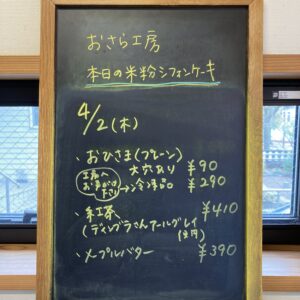 おさら工房
本日の米粉シフォンケーキ
4/2(木)
・おひさま(プレーン)
大穴あり ¥90
工房へお声がけ下さい → 冷凍品 ¥290
・紅茶 ¥410
(ディンブラさんアールグレイ
・メープルバター ¥390